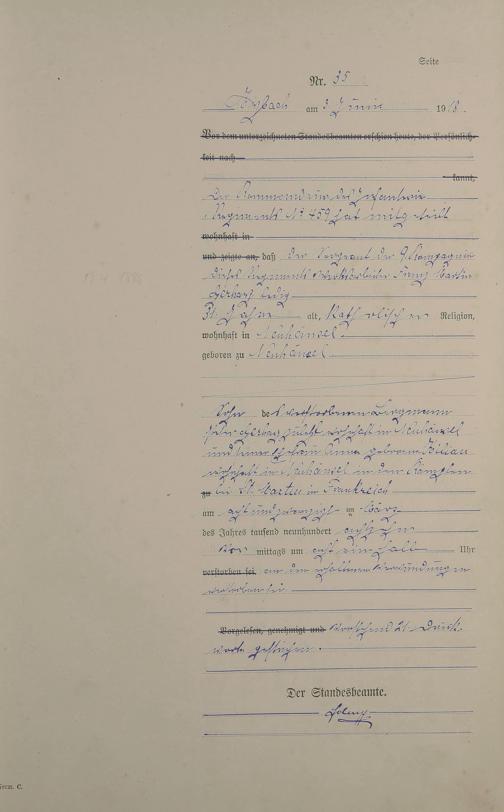 Seite
Nr. 35
am 3 Juni 1918.
Vor dem unterzeichneten Standesbeamten erschien heute, der Persönlich-
keit nach
kannt,
Der Kommandeur des Infanterie
Regiments No 459 hat mitgeteilt
wohnhaft in
und zeigte an, daß der Sergeant der 9. Kompagnie
dieses Regiments Franz Martin
Herbas ledig
31 Jahre alt, katholischer Religion,
wohnhaft in Neuhäusel
geboren zu Neuhäusel
Sohn des verstorbenen Bergmann
Peter Herbas zuletzt wohnhaft in Neuhäusel
und seiner Ehefrau Anna geborene
wohnhaft in Neuhäusel in den Kämpfen
zu bei St. Martin in Frankreich
am acht und zwanzigst en März
des Jahres tausend neunhundert achtzehn
Vor mittags um acht ein halb Uhr
verstorben sei. an den erhaltenen Verwundungen
verstorben sei
Vorgelesen, genehmigt und Vorstehend 21 Druck
worte gestrichen.
Der Standesbeamte.
Form. C.